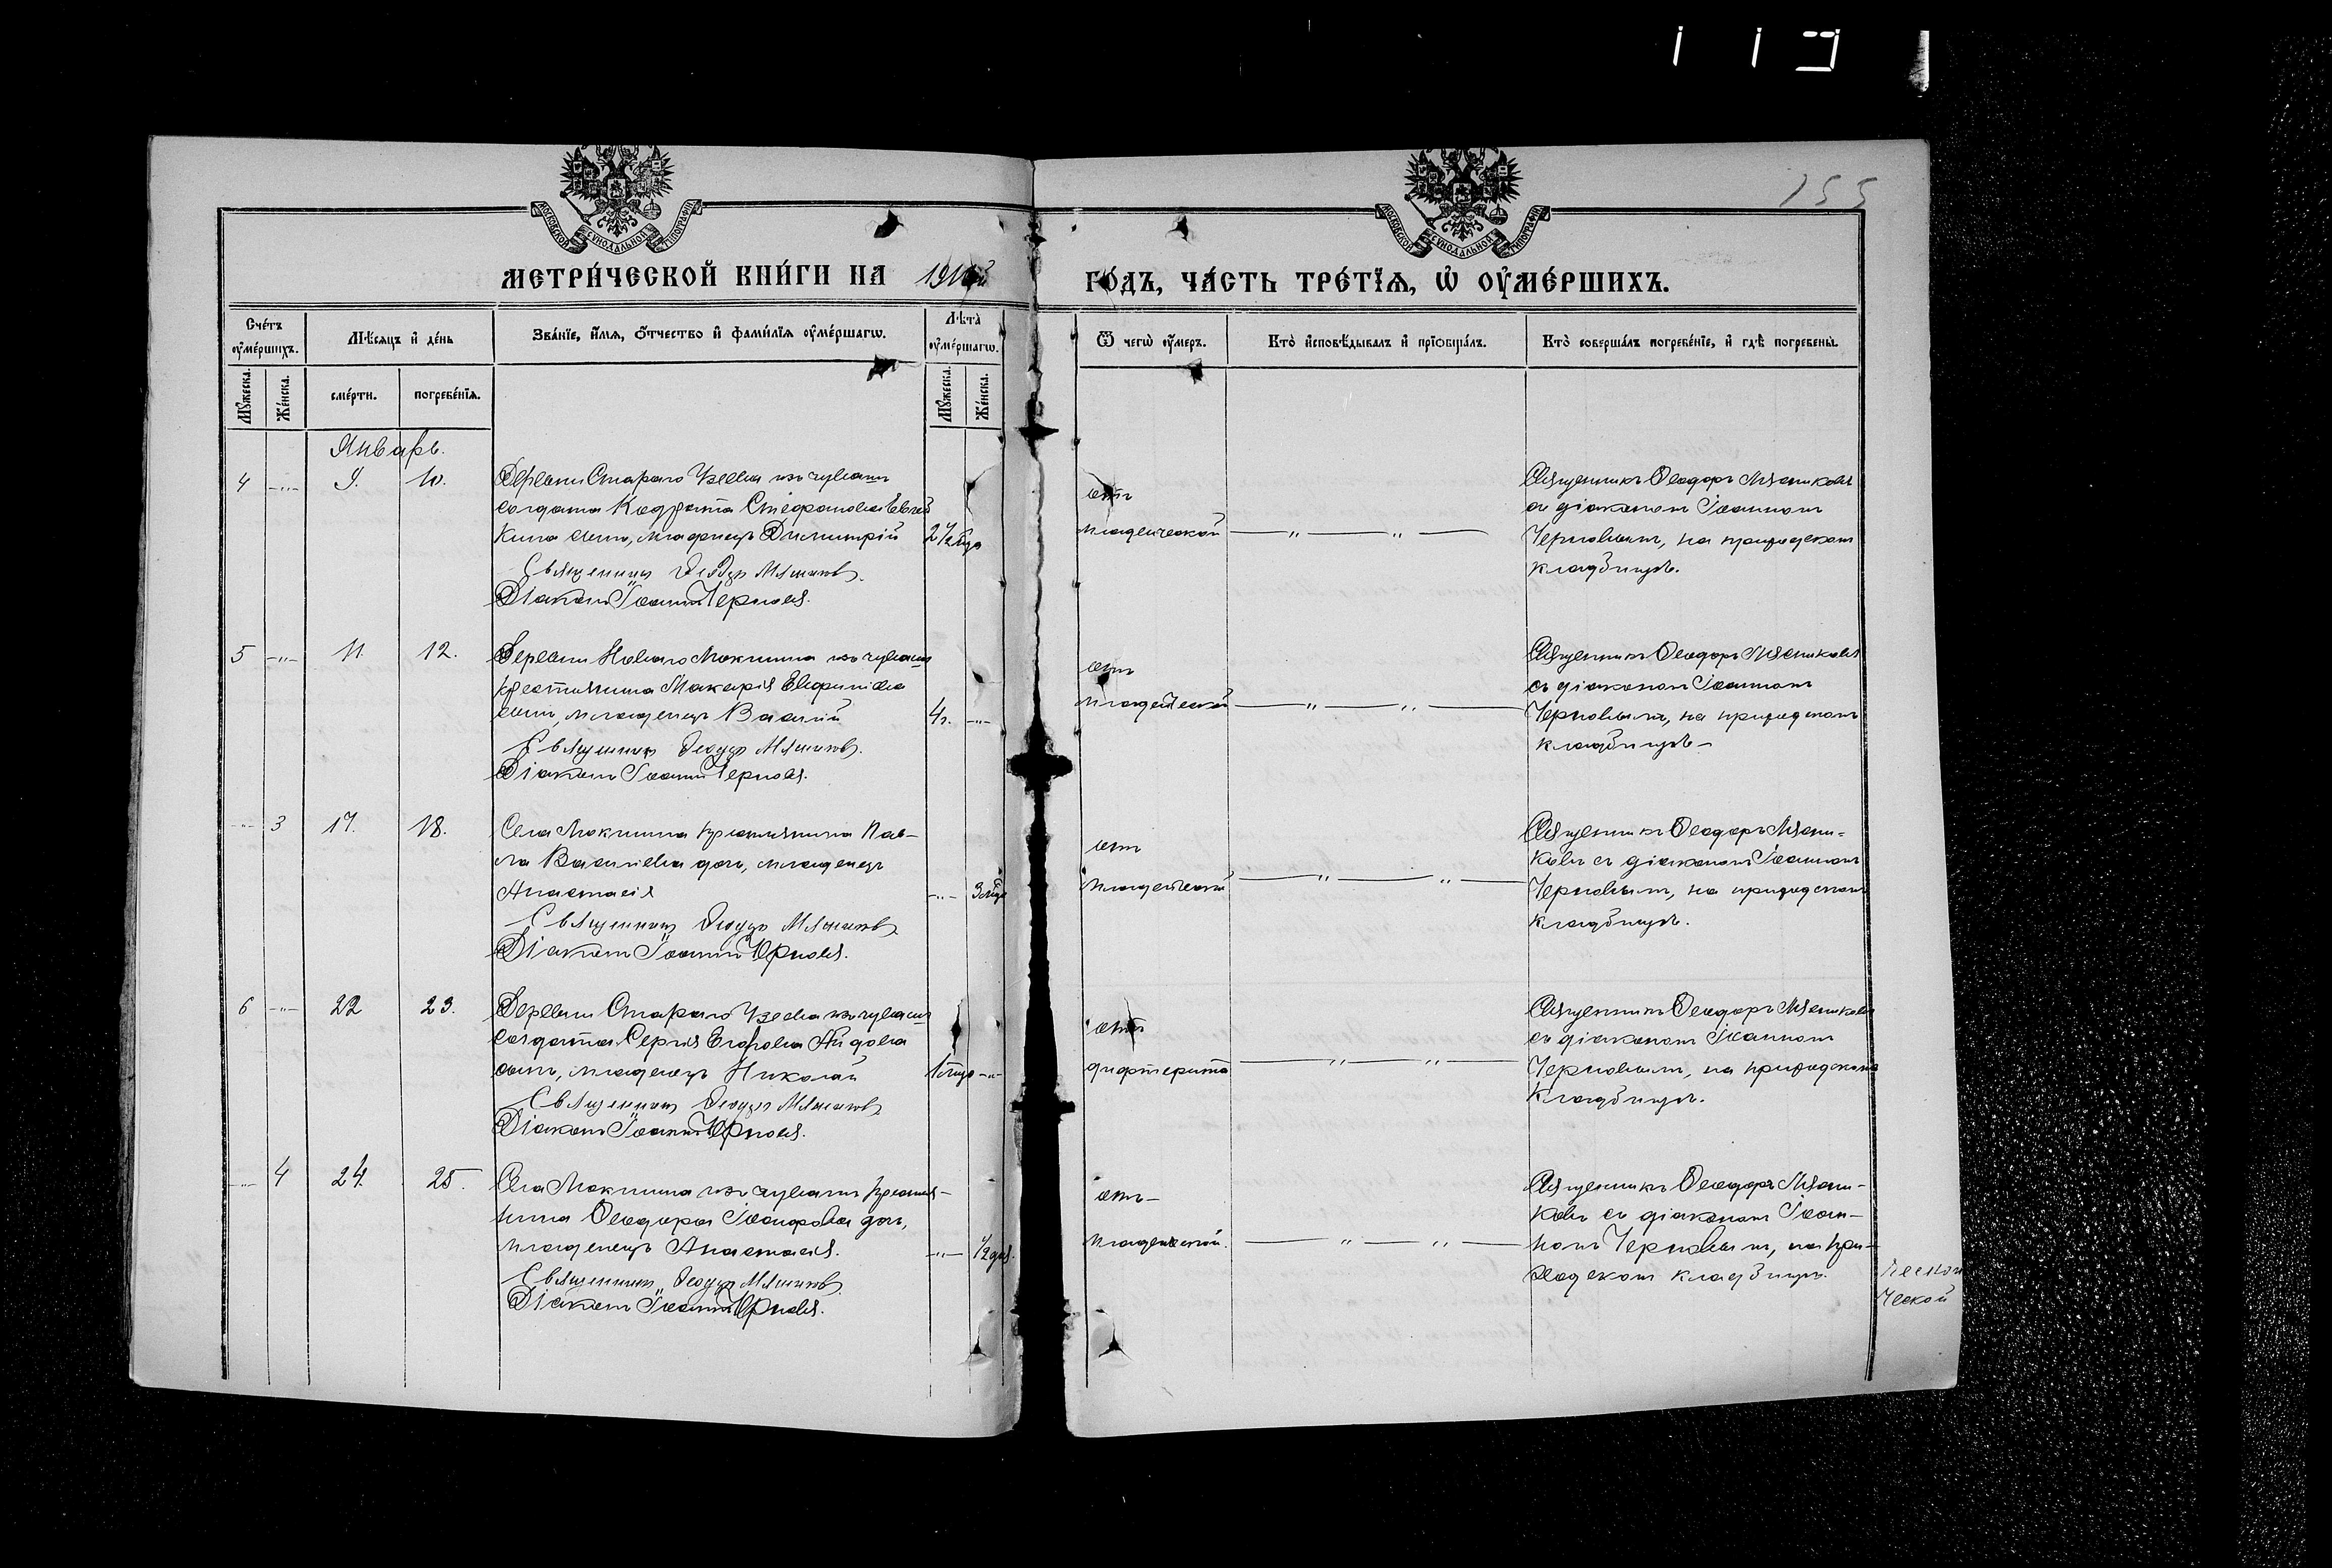 155
МОСКОВСКОЙ СУНОДАЛЬНОЙ ТИПОГРАФIИ
МОСКОВСКОЙ СУНОДАЛЬНОЙ ТИПОГРАФIИ
МЕТРИ́ЧЕСКОЙ КНИ́ГИ НА
ГО́ДЪ, ЧА́СТЬ ТРЕ́ТЇѦ, Ѡ҆ ОУ҆МЕ́РШИХЪ.
Сче́тъ оу҆ме́ршихъ.
Мѣ́сяцъ и҆ де́нь
Зва́нїе, и҆́мѧ, ѻ҆́тчество и҆ фами́лїѧ оу҆ме́ршагѡ.
Лѣ́та оу҆ме́ршагѡ.
Ѿ чегѡ̀ оу҆́меръ.
Кто̀ и҆сповѣ́дывалъ и҆ прїѻбща́лъ.
Кто̀ соверша́лъ погребе́нїе, и҆ гдѣ̀ погребены̀.
Му́жеска.
Же́нска.
сме́рти.
погребе́нїѧ.
Му́жеска.
Же́нска.
Январь.
4 -"- 9. 10.
Деревни Стараго Узеева изъ чувашъ
солдата Кодрата Стефанова
кина сынъ, младенецъ Димитрій
Священникъ Ѳеодоръ Мясников.
Діаконъ Іоаннъ Черновъ.
отъ
младенческой
Священникъ Ѳеодоръ Мясниковъ
съ діакономъ Іоанномъ
Черновымъ, на приходскомъ
кладбищѣ.
5 -"- 11. 12.
Деревни Новаго Мокшина изъ чувашъ
крестьянина Макарія Евфиміева
сынъ, младенецъ Василій
4 г. -"-
Священникъ Ѳеодоръ Мясников.
Діаконъ Іоаннъ Черновъ.
отъ
младенческой
Священникъ Ѳеодоръ Мясниковъ
съ діакономъ Іоанномъ
Черновымъ, на приходскомъ
кладбищѣ-
-"- 3 17. 18.
Села Мокшина крестьянина Пав-
ла Васильева дочь, младенецъ
Анастасія
Священникъ Ѳеодоръ Мясников.
Діаконъ Іоаннъ Черновъ.
отъ
младенческой
Священникъ Ѳеодоръ Мясни-
ковъ съ діакономъ Іоанномъ
Черновымъ, на приходскомъ
кладбищѣ.
6 -"- 22 23.
Деревни Стараго Узеева изъ чувашъ
солдата Сергія Егорова
сынъ, младенецъ Николай
Священникъ Ѳеодоръ Мясников.
Діаконъ Іоаннъ Черновъ.
отъ
дифтерита
Священникъ Ѳеодоръ Мясниковъ
съ діакономъ Іоанномъ
Черновымъ, на приходскомъ
кладбищѣ.
-"- 4 24. 25.
Села Мокшина изъ чувашъ крестья-
нина Ѳеодора дочь,
младенецъ Анастасія.
-"-
Священникъ Ѳеодоръ Мясников.
Діаконъ Іоаннъ Черновъ.
отъ-
младенческой.
Священникъ Ѳеодоръ Мясни-
ковъ съ діакономъ Іоан-
номъ Черновымъ, на при-
ходскомъ кладбищѣ.
ческой